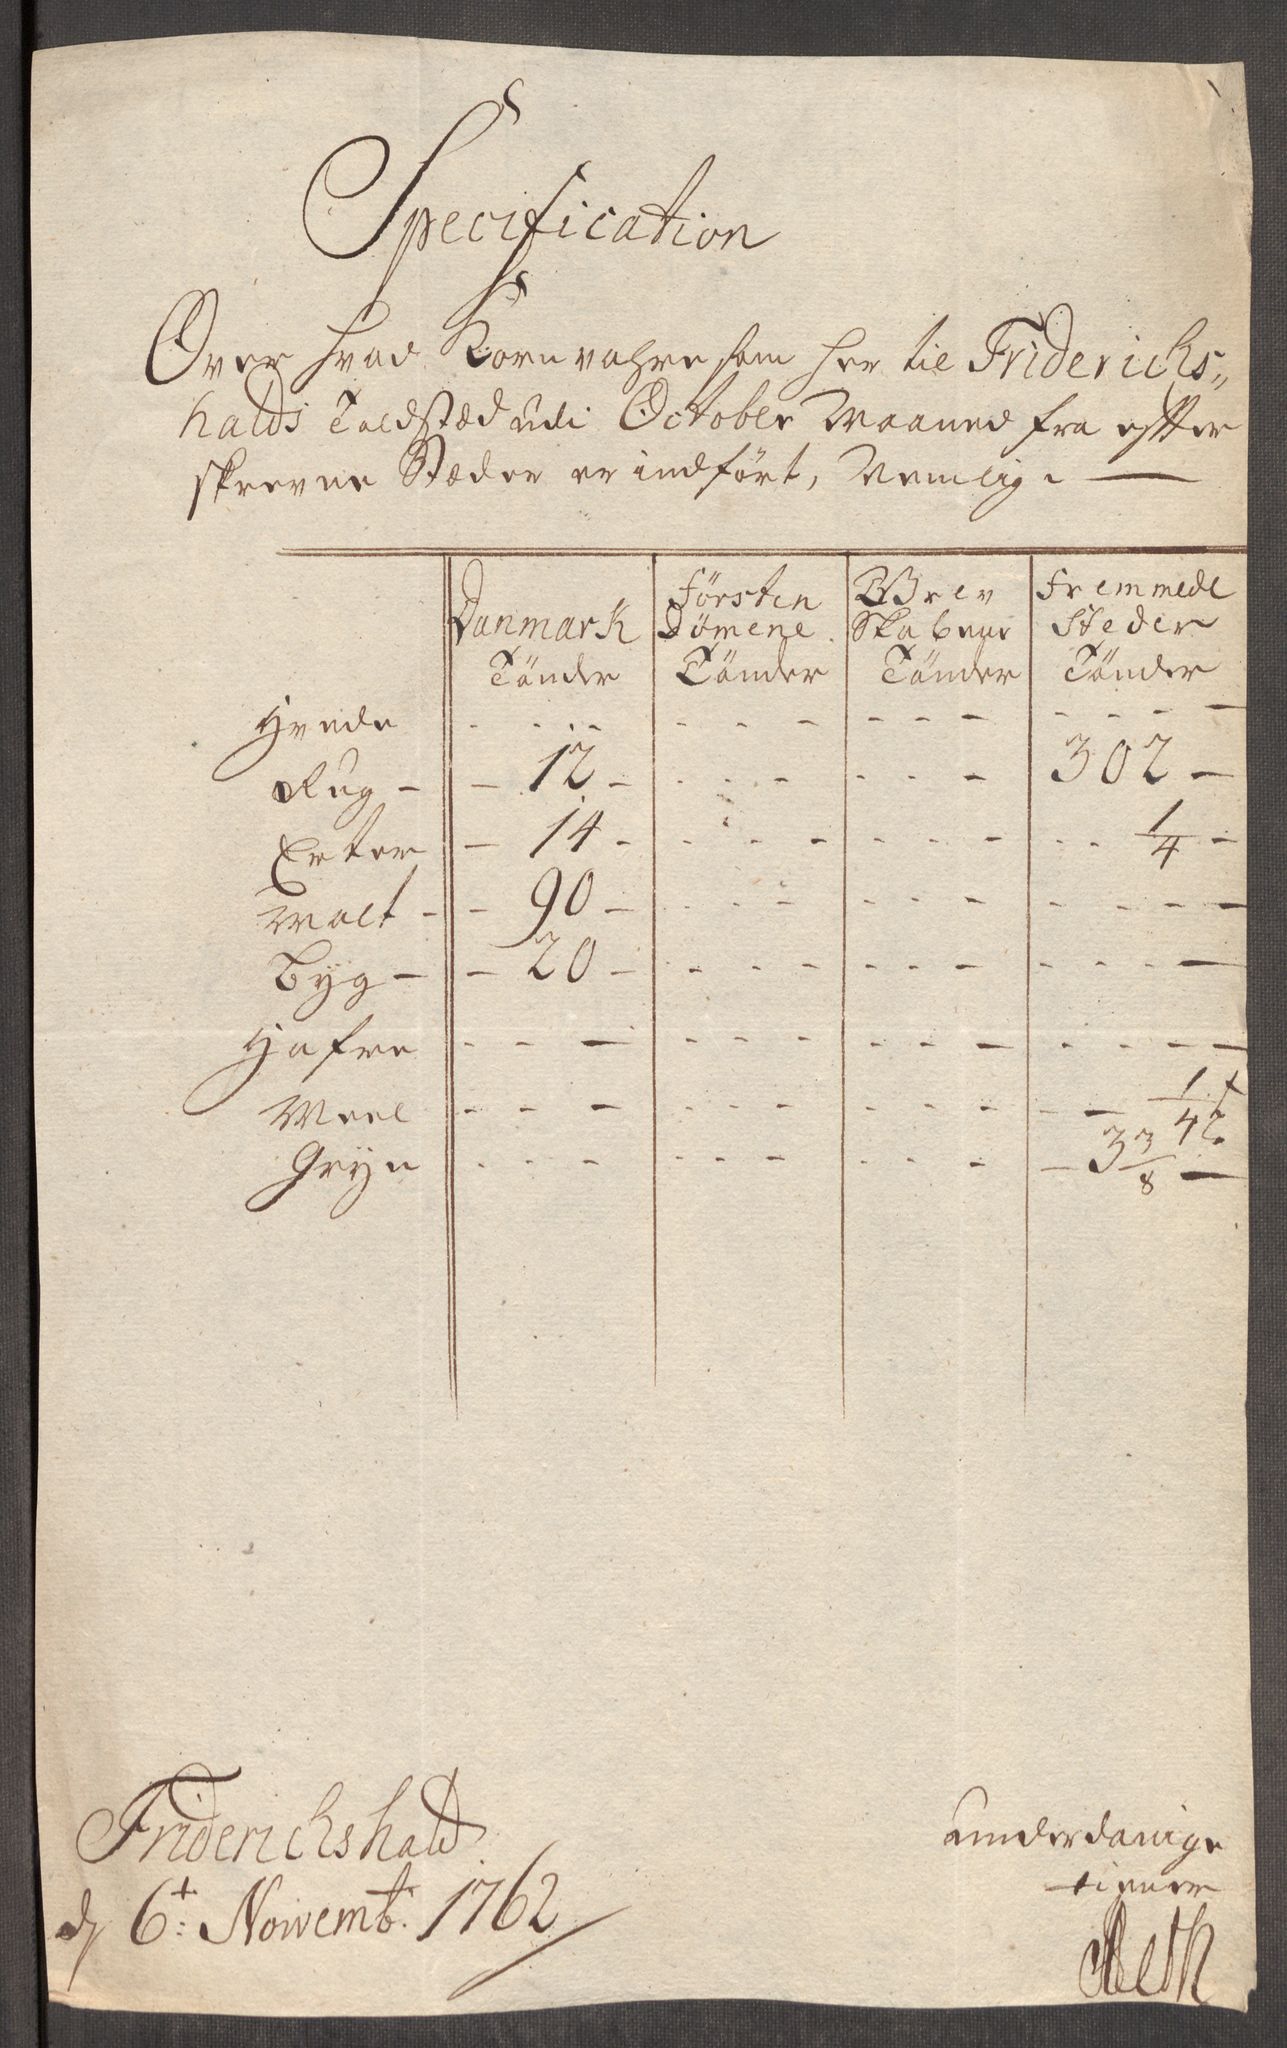 Specification
Over hvad Kornvahre som her til Friderichs„
halds Toldstæd udi October Maaned fra efter
skrevne Stæder er indført, Nemlig.
Danmark Försten Grev Fremmede
Dömene. Skaberne Steder
Tönder Tönder Tönder Tönder
Hvede - - - -
Rug - - 12 - - - - - - - 302 -
Erter - 14 - - - - - - - 1/4 -
Malt - - 90 - - - - - - - - - - -
Byg - - 20 - - - - - - - - - - -
Hafre - - - - - - - - - - - - -
Meel - - - - - - - - - - - 1/4
Gryn - - - - - - - - - - 3 3/8 -
Friderichshald
d 6t: Novemb: 1762
underdanige
tienere